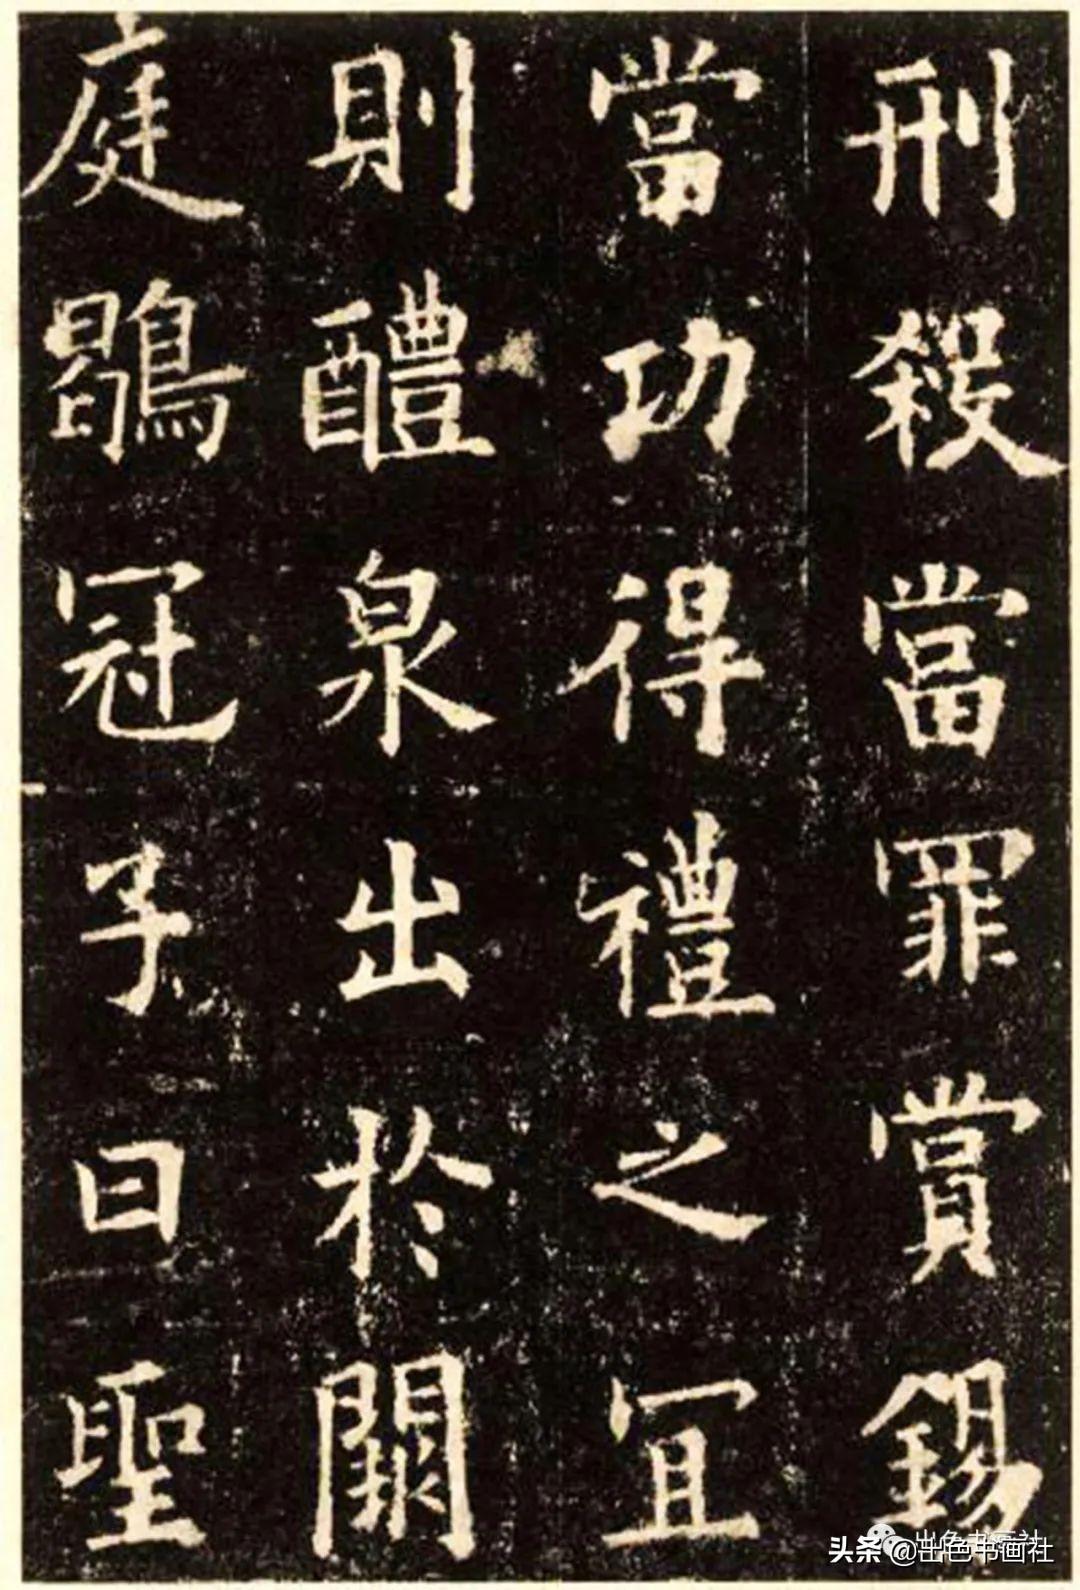 刑殺當罪賞錫
當功得禮之宜
則醴泉出於闕
庭鶡冠子曰聖
头条 @出色书画社
出色书画社